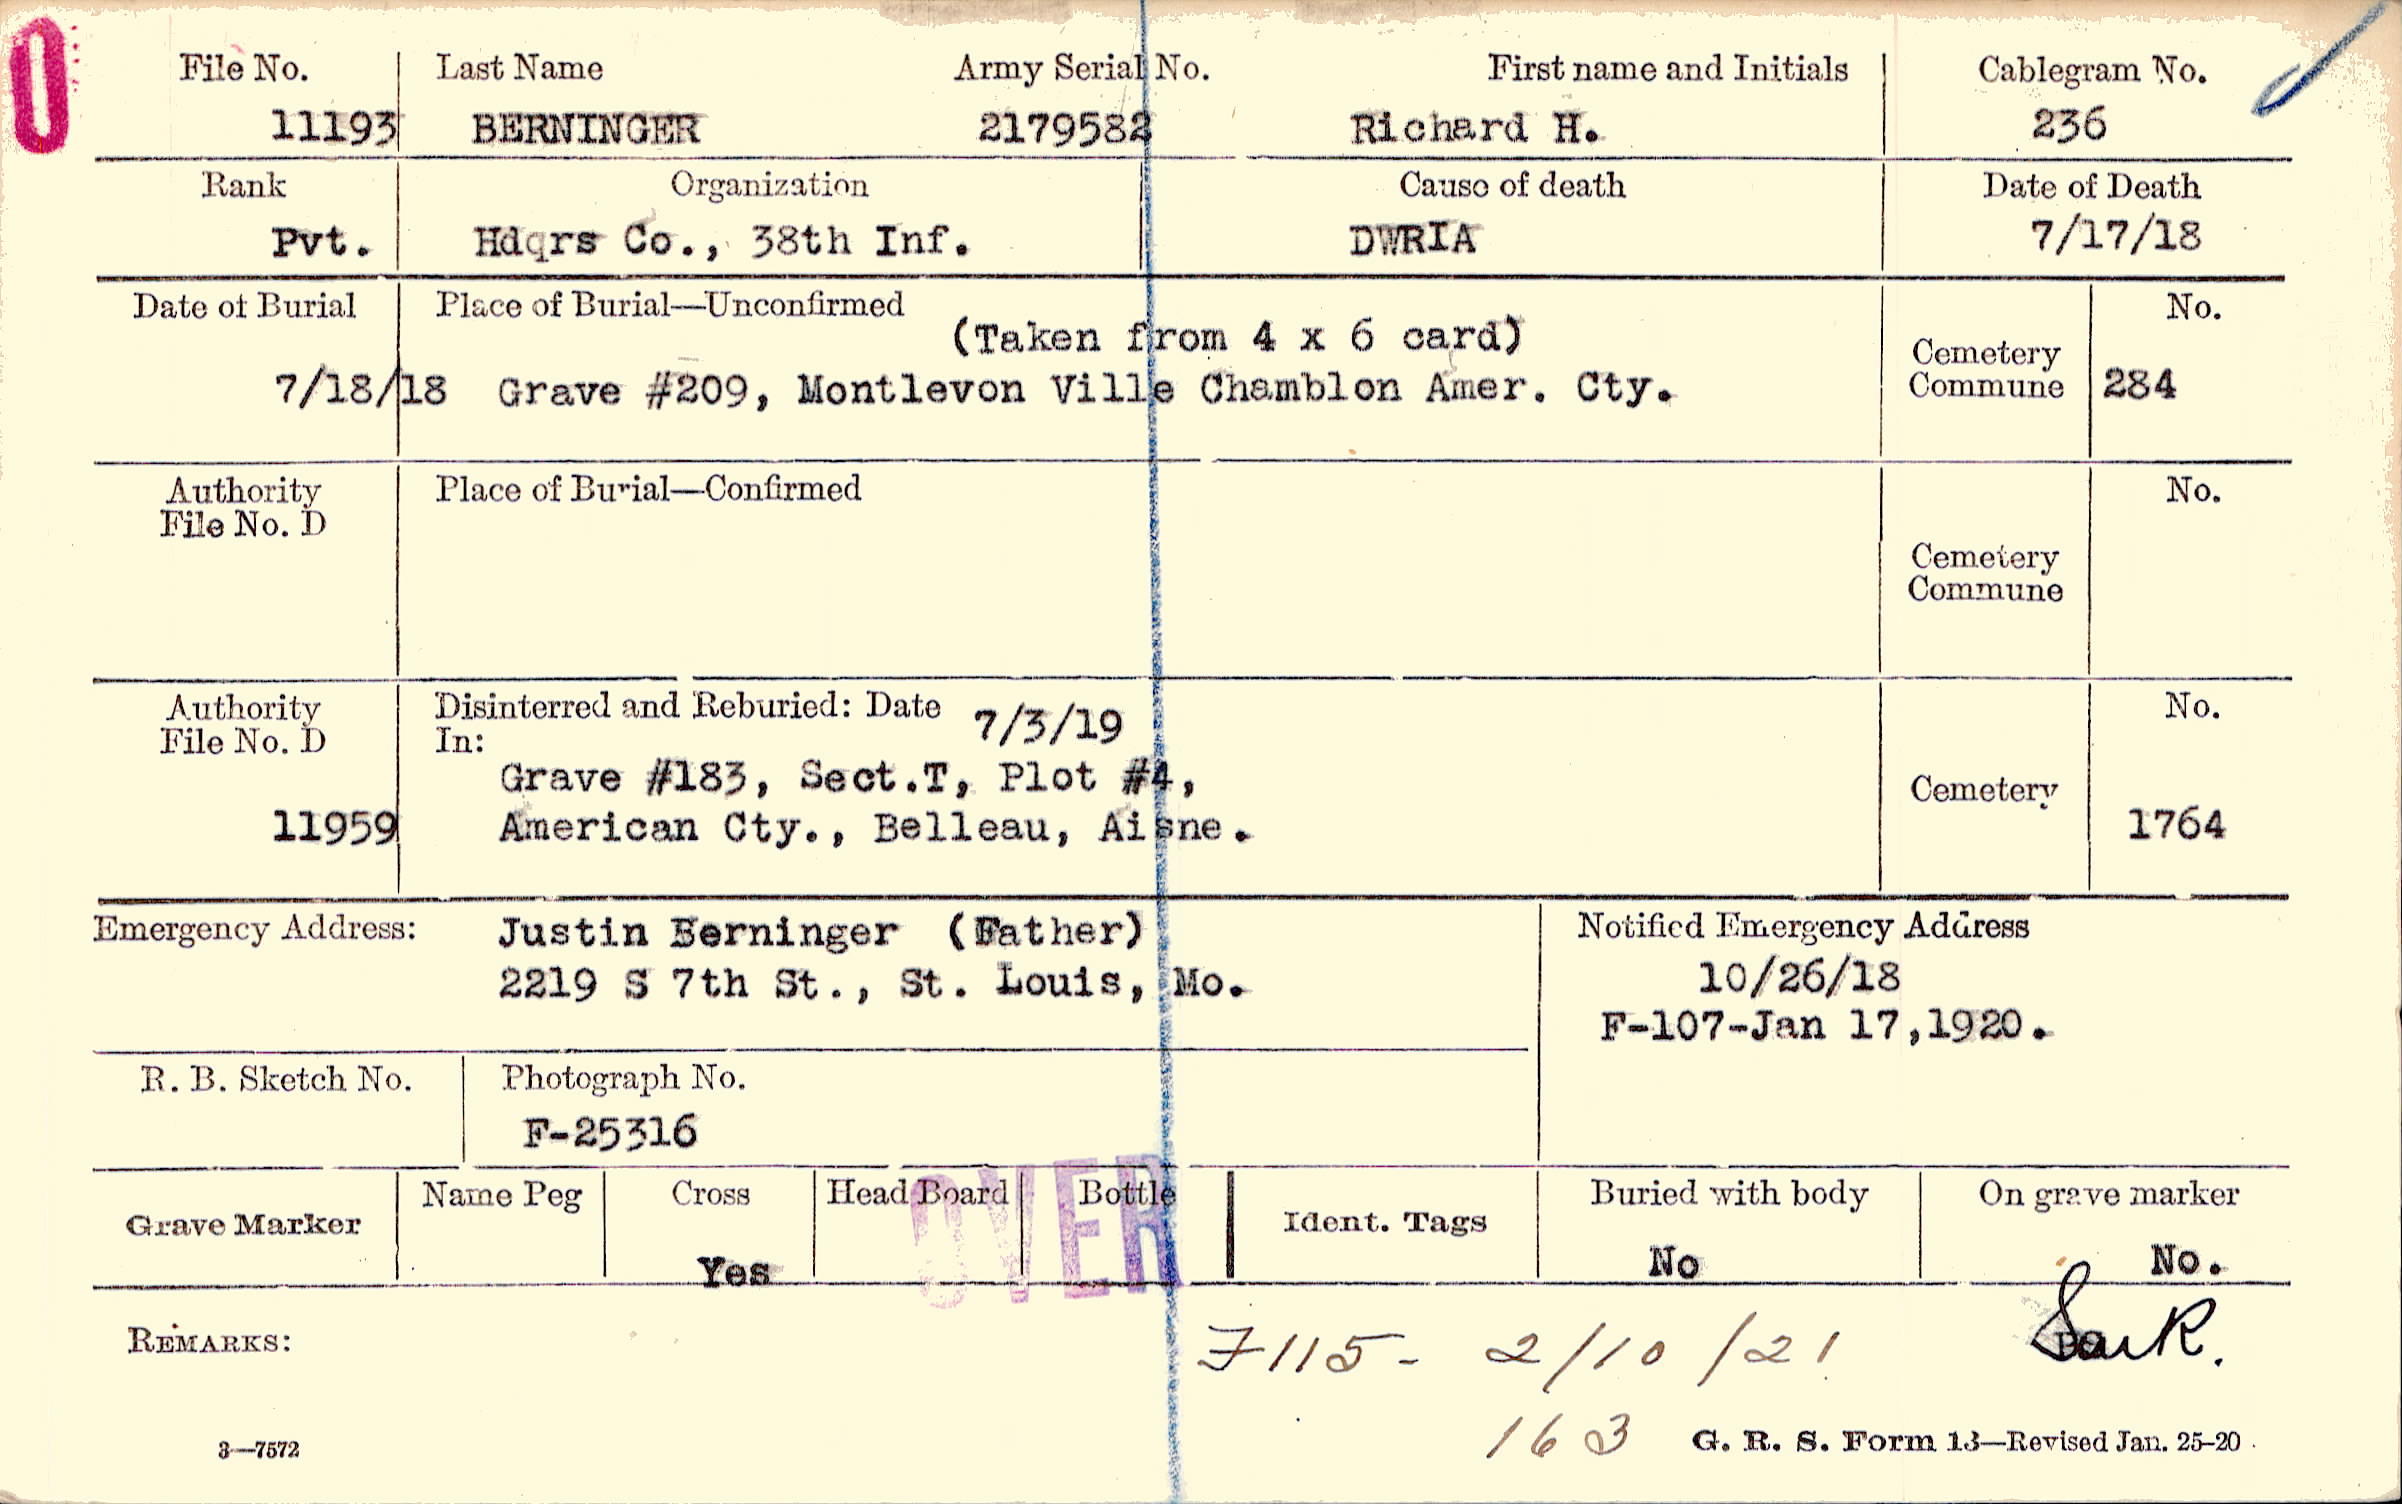 O
File No. Last Name Army Serial No. First name and Initials Cablegram No.
11193 BERNINGER 2179582 Richard H. 236
Rank Organization Cause of death Date of Death
Pvt. Hdqrs Co., 38th Inf. DWRIA 7/17/18
Date of Burial Place of Burial—Unconfirmed No.
(Taken from 4 x 6 card)
Cemetery
7/18/18 Grave #209, Montlevon Ville Chamblon Amer. Cty. Commune 284
Authority Place of Burial—Confirmed No.
File No. D
Cemetery
Commune
Authority Disinterred and Reburied: Date 7/3/19 No.
File No. D In:
Grave #183, Sect.T, Plot #4, Cemetery
11959 American Cty., Belleau, Aisne. 1764
Emergency Address: Justin Berninger (Father) Notified Emergency Address
2219 S 7th St., St. Louis, Mo. 10/26/18
F-107-Jan 17,1920.
R. B. Sketch No. Photograph No.
F-25316
Grave Marker Name Peg Cross Head Board Bottle Ident. Tags Buried with body On grave marker
Yes No No.
OVER
REMARKS: F115- 2/10/21
163
3—7572 G. R. S. Form 13—Revised Jan. 25-20